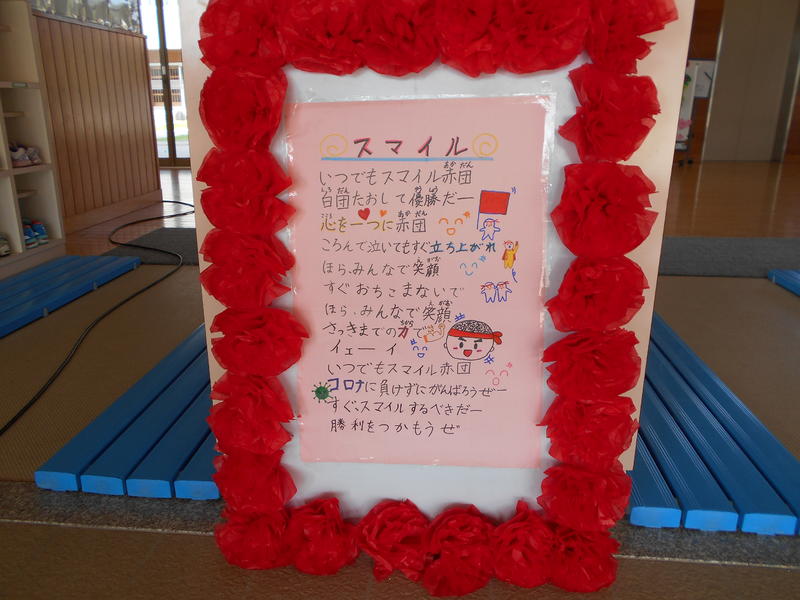 スマイル
いつでもスマイル赤団
白団たおして優勝だー
心を一つに赤団
ころんで泣いてもすぐ立ち上がれ
ほら、みんなで笑顔
すぐおちこまないで
ほら、みんなで笑顔
さっきまでの力で
イェーイ
いつでもスマイル赤団
コロナに負けずにがんばろうぜー
すぐ、スマイルするべきだー
勝利をつかもうぜ